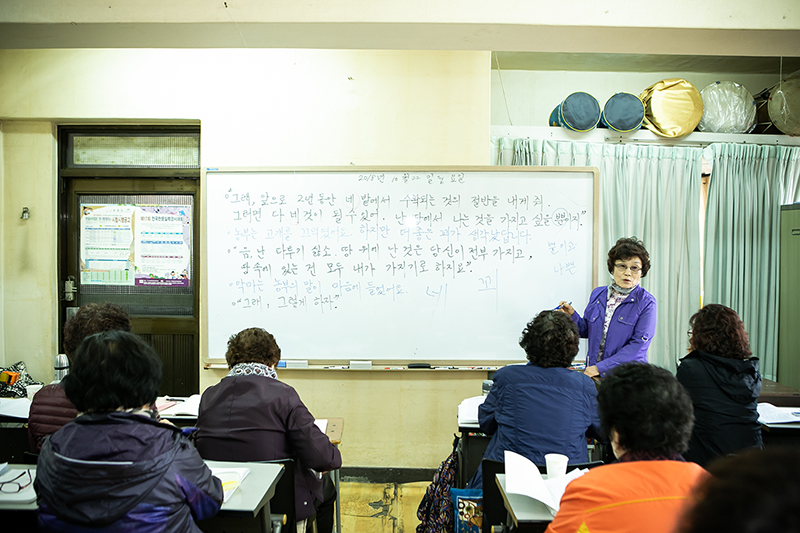 2018년 10월 22일 월요일
"그래, 앞으로 2년 동안 네 밭에서 수확되는 것의 절반을 내게 줘.
그러면 다 네 것이 될 수 있어. 난 땅에서 나는 것을 가지고 싶을 뿐이거든."
농부는 고개를 끄덕였어요. 하지만 더 좋은 꾀가 생각났답니다.
"음, 난 다투기 싫소. 땅 위에 난 것은 당신이 전부 가지고,
땅 속에 있는 건 모두 내가 가지기로 하지요."
악마는 농부의 말이 마음에 들었어요
"그래, 그렇게 하자."
꾀